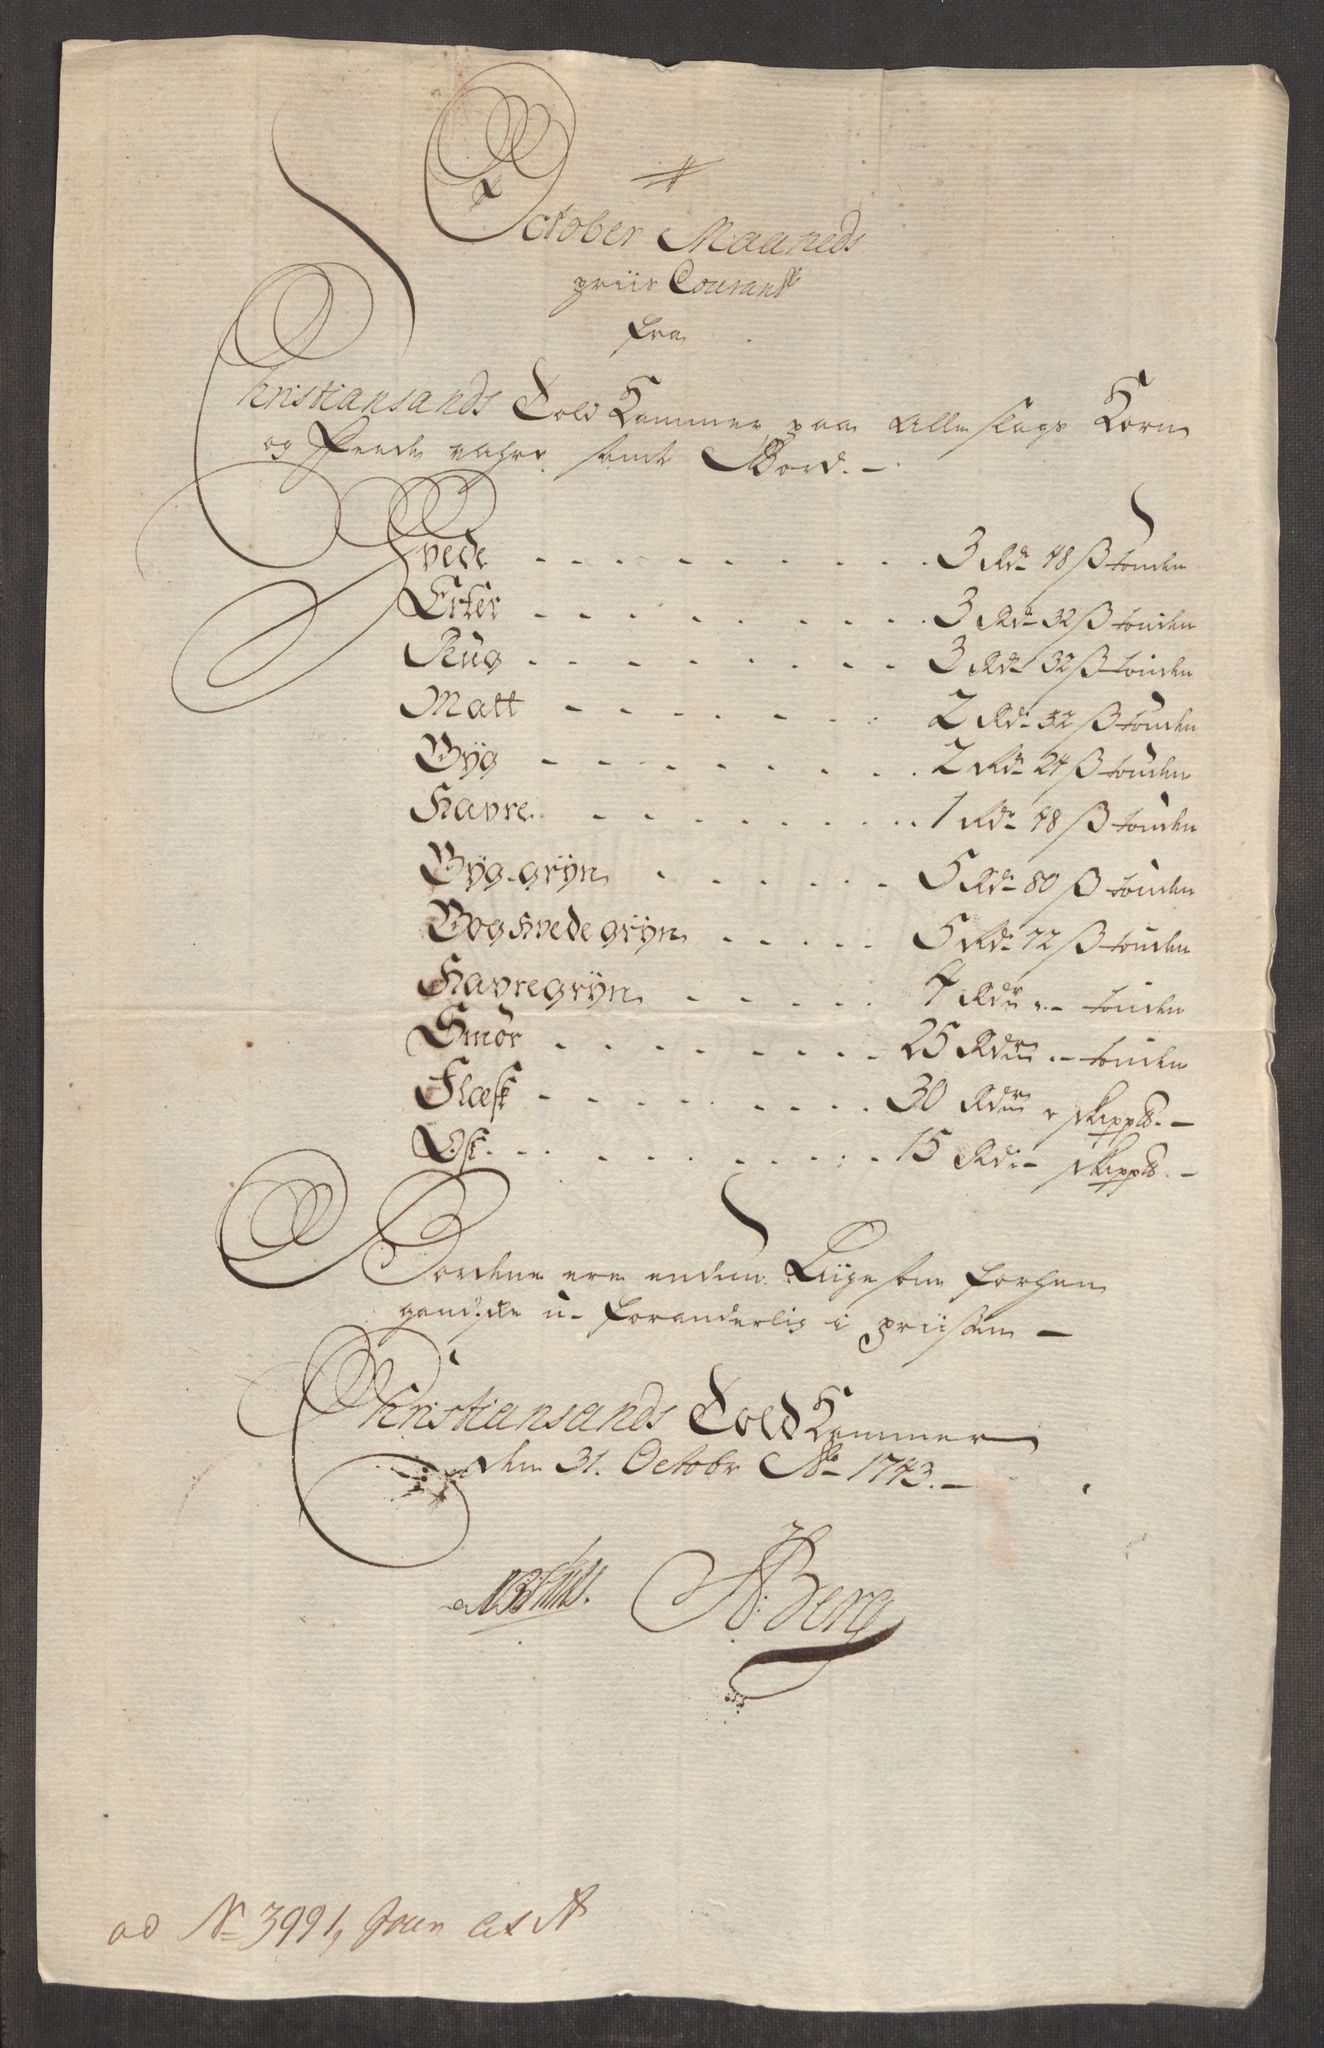 October Maaneds
priis Courant
fra
Christiansands Told Kammer paa alle slags Korn
og Feede vahre samt Bord. -
Hvede - - - - - - - - 3 Rdr 48 ß tønden
Erter - - - - - - - - 3 Rdr 32 ß tønden
Rug - - - - - - - - 3 Rdr 32 ß tønden
Malt - - - - - - - 2 Rdr 32 ß tønden
Byg - - - - - - - - 2 Rdr 24 ß tønden
Havre - - - - - - - - 1 Rdr 48 ß tønden
Byg-gryn - - - - - 5 Rdr 80 ß tønden
Boghvede gryn - - - - 5 Rdr 72 ß tønden
Havregryn - - - - 4 Rdr - tønden
Smør - - - - - - - 25 Rdr - tønden
Flæsk - - - - - - - - 30 Rdr skippd. -
Ost - - - - - - - - 15 Rdr - skippd. -
Bordene ere endnu Liige som forhen
u-foranderlig i priisen -
Christiansands Told Kammer
den 31. Octobr Ao 1743. -
Berg
ad No 3991, Jour Lit A